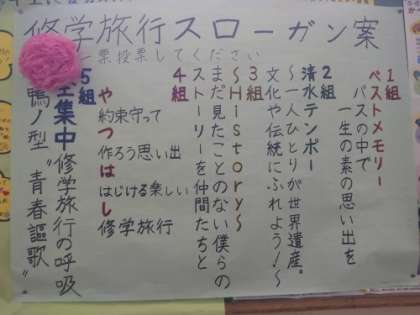 修学旅行スローガン案
票投票してください
1組
ベストメモリー
バスの中で
一生の素の思い出を
2組
清水テンポー
～一人ひとりが世界遺産。
文化や伝統にふれよう!～
3組
～History～
まだ見たことのない僕らの
ストーリーを仲間たちと
4組
や 約束守って
つ 作ろう思い出
は はじける楽しい
し 修学旅行
5組
全集中 修学旅行の呼吸
鴨ノ型 "青春謳歌"